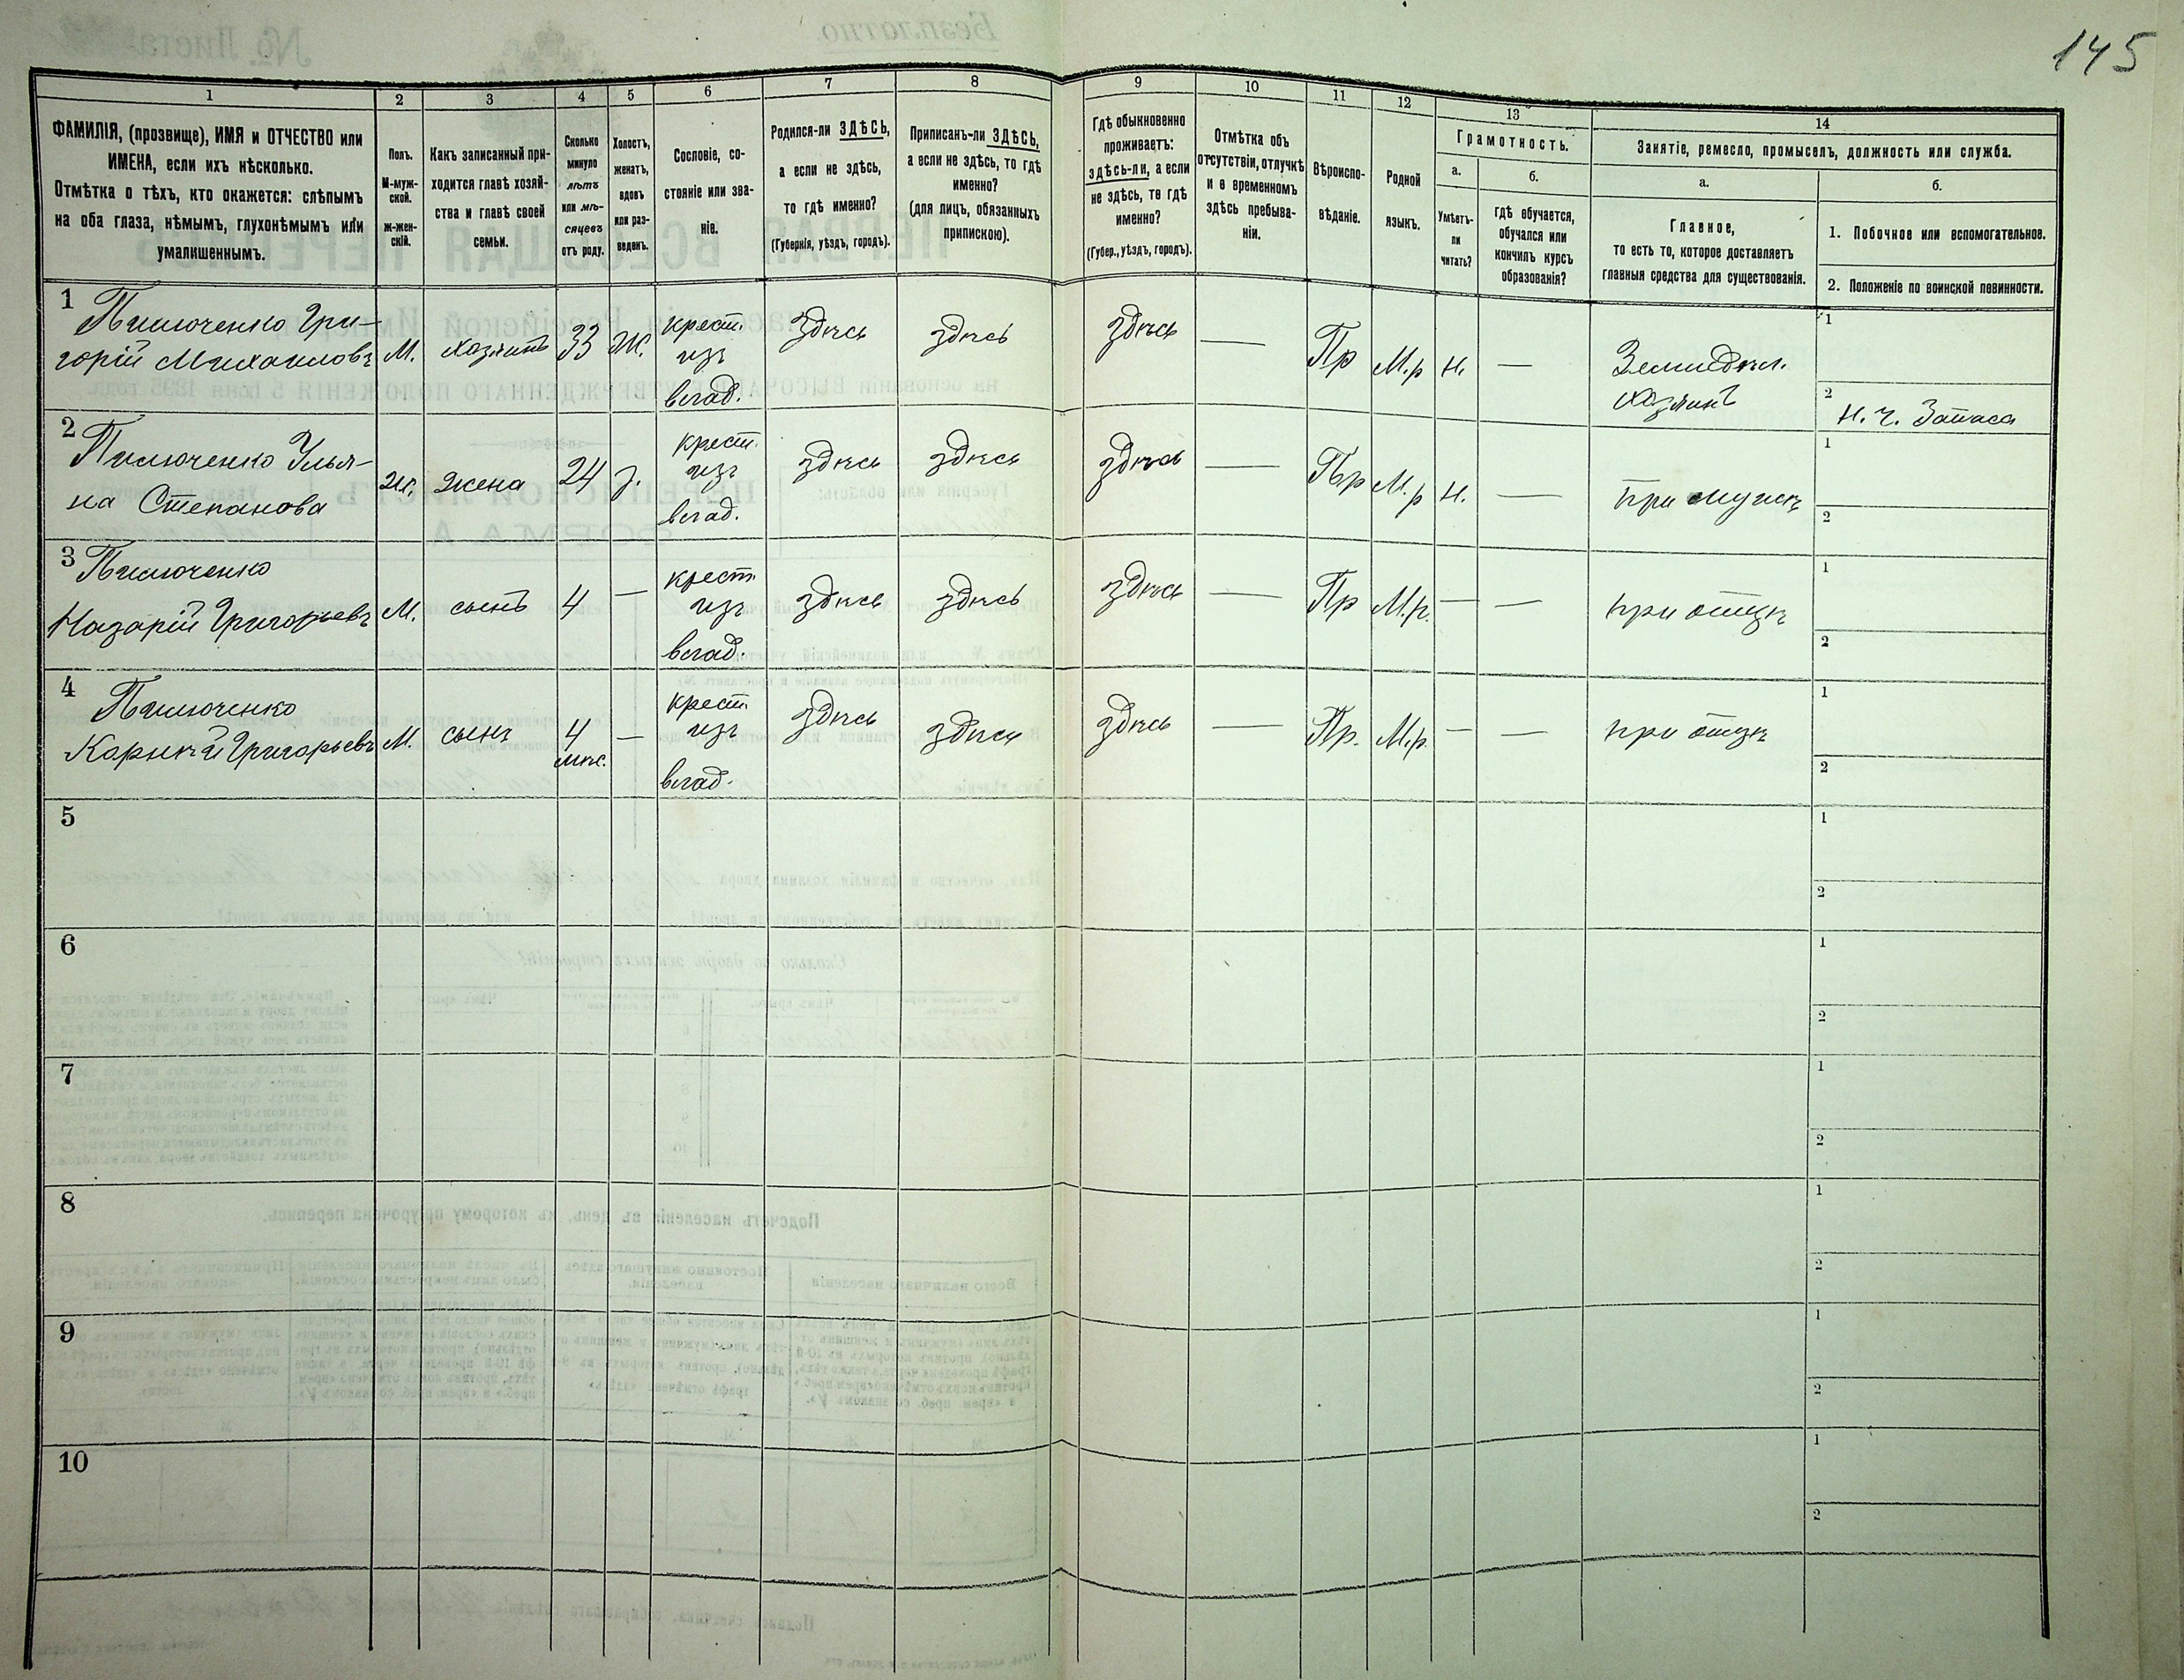 145
1 2 3 4 5 6 7 8 9 10 11 12 13 14
ФАМИЛІЯ, (прозвище), ИМЯ и ОТЧЕСТВО или
ИМЕНА, если ихъ нѣсколько.
Отмѣтка о тѣхъ, кто окажется: слѣпымъ
на оба глаза, нѣмымъ, глухонѣмымъ или
умалишеннымъ.
Полъ.
М-муж-
ской.
ж-жен-
скій.
Какъ записанный при-
ходится главѣ хозяй-
ства и главѣ своей
семьи.
Сколько
минуло
лѣтъ
или мѣ-
сяцевъ
отъ роду.
Холостъ,
женатъ,
вдовъ
или раз-
веденъ.
Сословіе, со-
стояніе или зва-
ніе.
Родился-ли ЗДѢСЬ,
а если не здѣсь,
то гдѣ именно?
(Губернія, уѣздъ, городъ).
Приписанъ-ли ЗДѢСЬ,
а если не здѣсь, то гдѣ
именно?
(для лицъ, обязанныхъ
припискою).
Гдѣ обыкновенно
проживаетъ:
здѣсь-ли, а если
не здѣсь, то гдѣ
именно?
(Губер., уѣздъ, городъ).
Отмѣтка объ
отсутствіи, отлучкѣ
и о временномъ
здѣсь пребыва-
ніи.
Вѣроиспо-
вѣданіе.
Родной
языкъ.
Грамотность.
а.
Умѣетъ-
ли
читать?
б.
гдѣ обучается,
обучался или
кончилъ курсъ
образованія?
Занятіе, ремесло, промыселъ, должность или служба.
а.
Главное,
то есть то, которое доставляетъ
главныя средства для существованія.
б.
1. Побочное или вспомогательное.
2. Положеніе по воинской повинности.
1
Пилюченко Гри-
горій Михаиловъ
М.
хозяинъ
33
Ж.
крест.
изъ
влад.
здѣсь
здѣсь
здѣсь
—
Пр
М.р
н.
—
Земледѣл.
хозяинъ
1
2
н. ч. Запаса
2
Пилюченко Улья-
на Степанова
ж.
жена
24
з.
крест.
изъ
влад.
здѣсь
здѣсь
здѣсь
—
Пр
М.р
н.
—
при мужѣ
1
2
3
Пилюченко
Назарій Григорьевъ
М.
сынъ
4
—
крест.
изъ
влад.
здѣсь
здѣсь
здѣсь
—
Пр
М.р.
—
—
при отцѣ
1
2
4
Пилюченко
Корнѣй Григорьевъ
М.
сынъ
4
мѣс.
—
крест.
изъ
влад.
здѣсь
здѣсь
здѣсь
—
Пр.
М.р.
—
—
при отцѣ
1
2
5
1
2
6
1
2
7
1
2
8
1
2
9
1
2
10
1
2